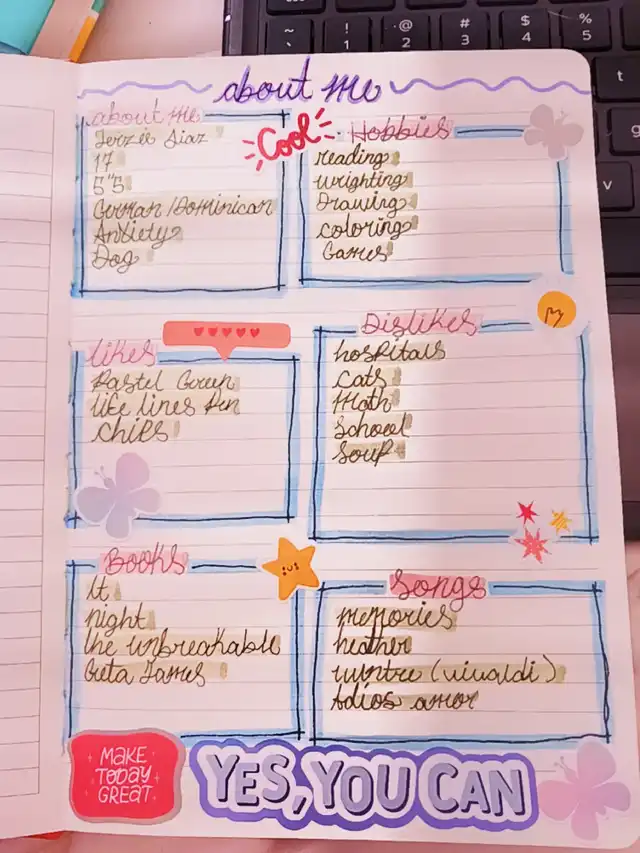 about me
about me
Jerzee Diaz
17
5"5
German/Dominican
Anxiety
Dog
Cool
Hobbies
reading
wrighting
Drawing
coloring
Games
likes
Pastel Green
like lines Pen
chips
Dislikes
hospitals
cats
Math
School
Soup
Books
It
night
the unbreakable
Songs
memories
heather
wintre (vivaldi)
Adios amor
MAKE
TODAY
GREAT
YES, YOU CAN
~
`
!
1
@
2
#
3
$
4
%
5
T
V